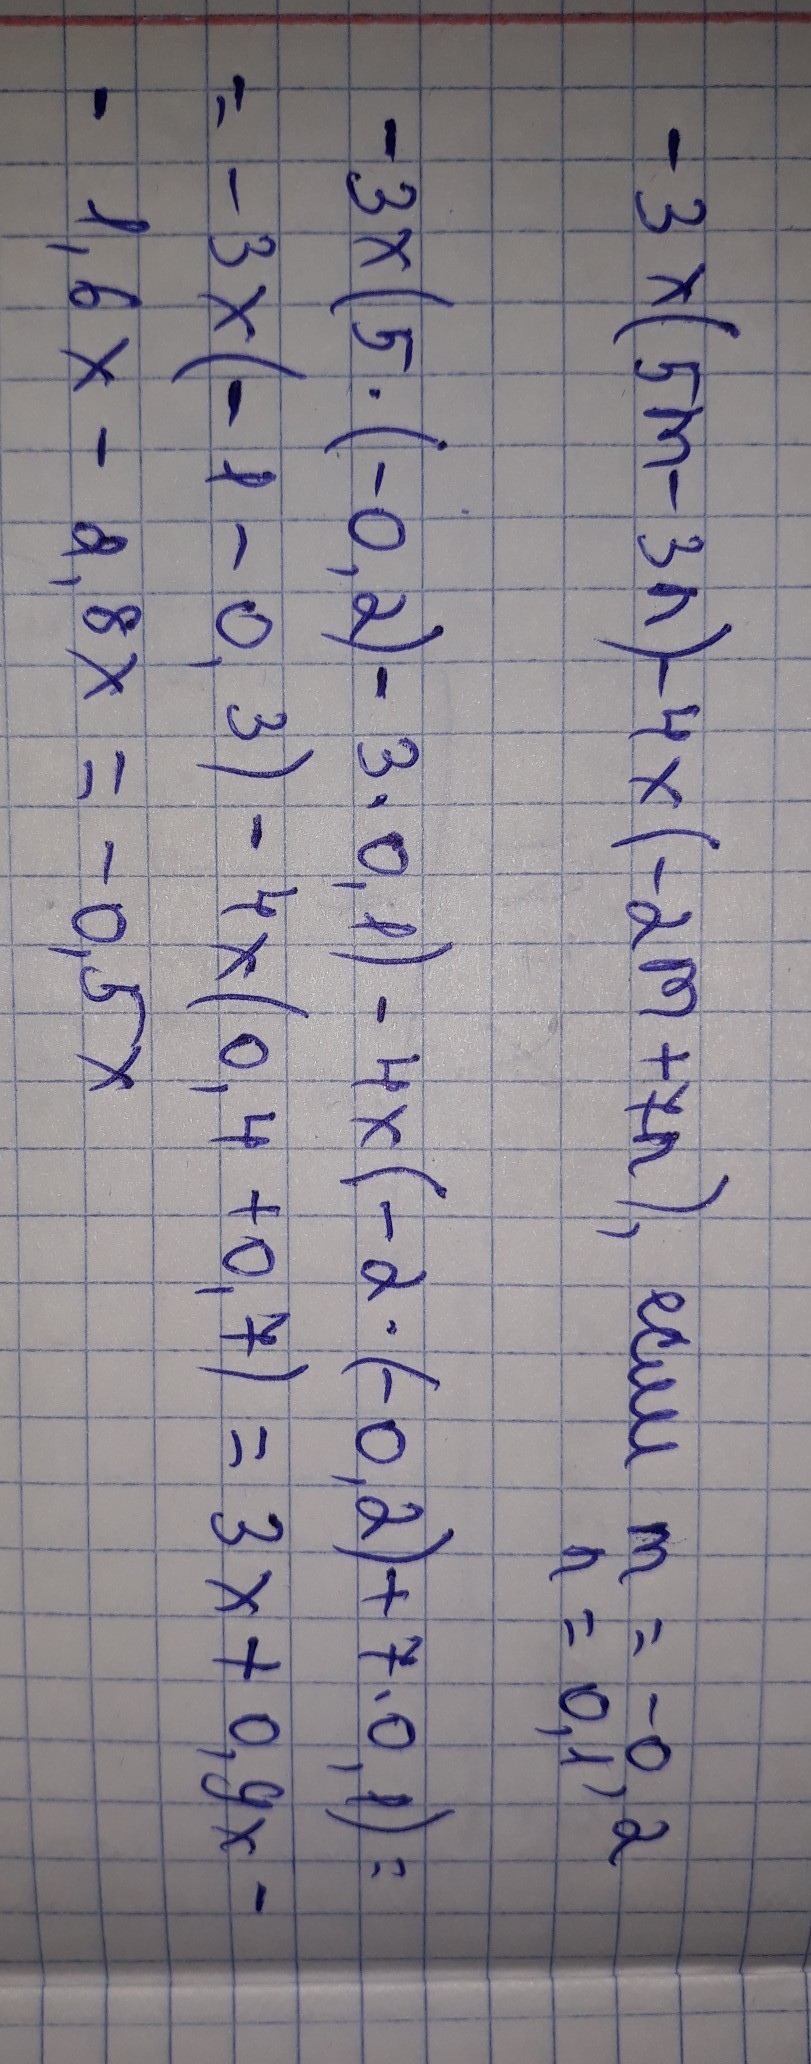 -3x(5m-3n)-4x(-2m+7n), если m = -0,2
n = 0,1
-3x(5·(-0,2)-3·0,1)-4x(-2·(-0,2)+7·0,1)=
=-3x(-1-0,3)-4x(0,4+0,7)=3x+0,9x-
-1,6x-2,8x=-0,5x